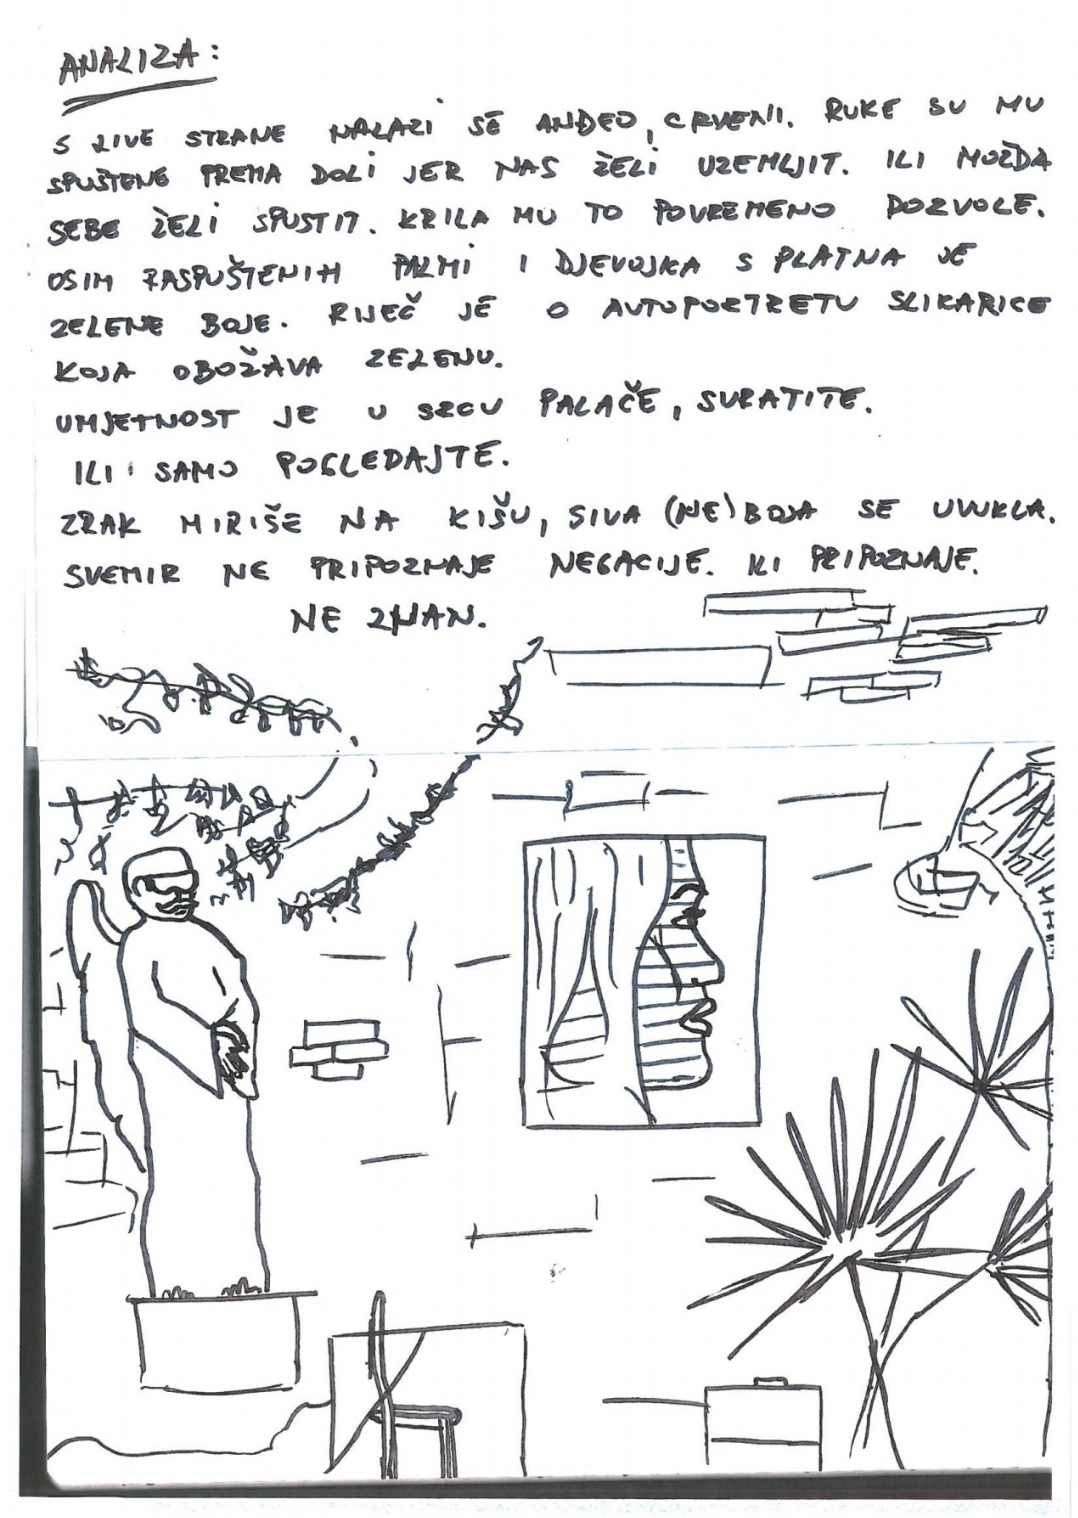 ANALIZA:
S LIVE STRANE NALAZI SE ANĐEO, CRVENI. RUKE SU MU
SPUŠTENE PREMA DOLI JER NAS ŽELI UZEMLJIT. ILI MOŽDA
SEBE ŽELI SPUSTIT. KRILA MU TO POVREMENO DOZVOLE.
OSIM RASPUŠTENIH PALMI I DJEVOJKA S PLATNA JE
ZELENE BOJE. RIJEČ JE O AUTOPORTRETU SLIKARICE
KOJA OBOŽAVA ZELENU.
UMJETNOST JE U SRCU PALAČE, SVRATITE.
ILI SAMO POGLEDAJTE.
ZRAK MIRIŠE NA KIŠU, SIVA (NE)BOJA SE UVUKLA.
SVEMIR NE PRIPOZNAJE NEGACIJE. ILI PRIPOZNAJE.
NE ZNAN.